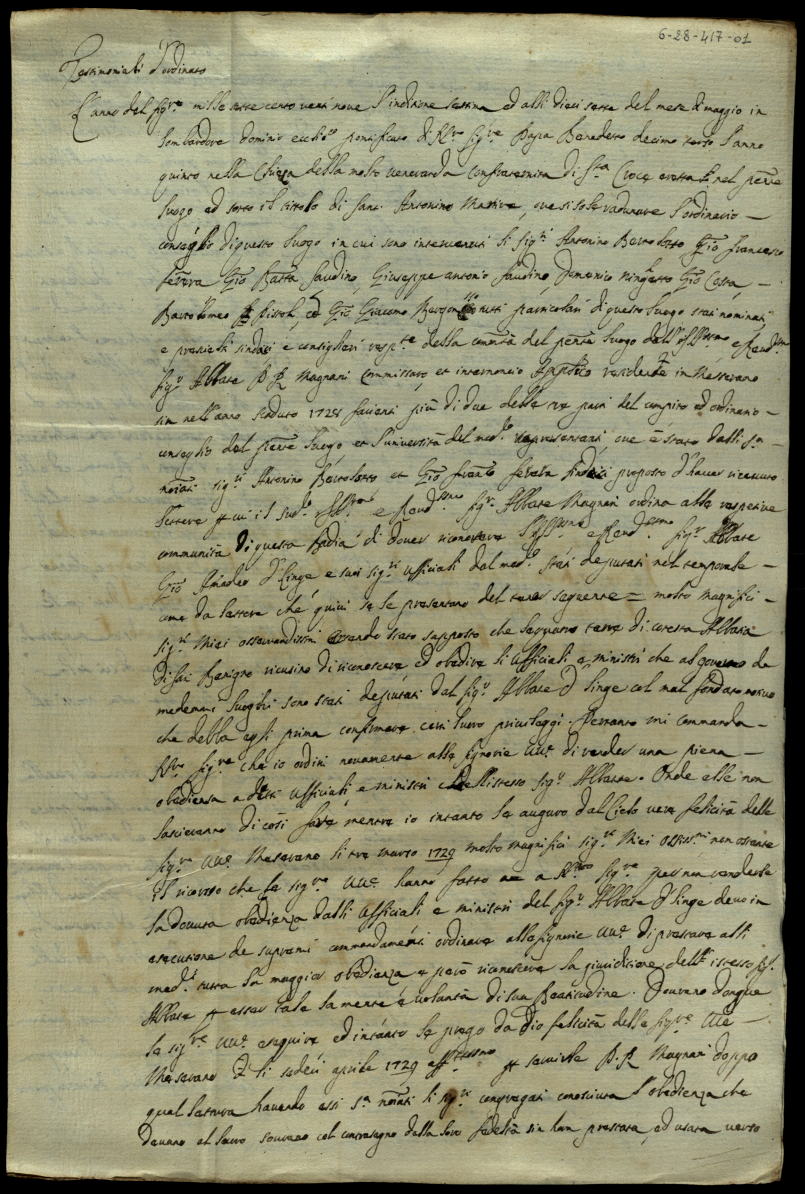 6-28-417-01
Testimoniali d'ordinato
L'anno del Sig.re mille sette cento venti nove l'inditione settima ed alli dieci sette del mese di maggio in
Lombardore dominio eccl.co pontificato di N.ro Sig.re Papa Benedetto decimo terzo l'anno
quinto nella Chiesa della molto veneranda confraternita di S.ta Croce eretta nel pnte
luogo ed sotto il tittolo di Sant Antonino Martire, ove si sole radunare l'ordinario
conseglio di questo luogo in cui sono intervenuti li Sig.ri Antonino Bertolotto Gio Francesco
Ferrera Gio Batta Gaudino, Giuseppe Antonio Gaudino, Domenico Gio Costa,
Bartolomeo ed Gio Giacomo tutti particolari di questo luogo stati nominati
e sindaci e consiglieri resp.te della comtà del pnte luogo dall'Ill.mo e Rend.mo
Sig.r Abbate P. R. Magnani Commissaro, et internoncio Appostco residente in Messerano
sin nell'anno scaduto 1728 facienti più di due delle tre parti del compito ed ordinario
conseglio del pnte luogo et l'università del med.o representanti, ove è stato dalli s.a
nominati sig.ri Antonino Bertolotto et Gio Franco Ferrera sindici proposto d'haver ricevuto
lettere cui il sud.o Ill.mo e Rend.mo Sig.r Abbate Magnani ordina alle respetive
communità di questa Badia di dover riconoscere l'Ill.mo e Rend.mo Sig.r Abbate
Gio Amedeo d'Linge e suoi sig.ri ufficiali dal med.o stati deputati nel temporale
come da lettere che quivi se le presentano del tenor seguente = molto magnifici
sig.ri Miei osservandissimi essendo stato supposto che le quatro terre di cotesta Abbatia
di San Benigno ricusino di riconoscere ed obedire li ufficiali e ministri che al governo de
medemi luoghi sono stati deputati dal sig.r Abbate d Linge col mal fondato motivo
che debba egli prima confirmare certi loro privileggi. Pertanto mi commanda
N.ro Sig.re che io ordini novamente alle signorie VV.e di render una piena
obedienza a detti ufficiali e ministri dell'istesso sig.r Abbate. Onde elle non
lascieranno di così fare mentre io intanto le auguro dal Cielo vere felicità delle
sig.rie VV.e Messerano li tre marzo 1729 molto magnifici sig.ri Miei osserv.mi non ostante
il ricorso che le sig.rie VV.e hanno fatto a N.ro Sig.re per non renderle
la dovuta obedienza dalli ufficiali e ministri del sig.r Abbate d'Linge devo in
esecutione de supremi commandamenti ordinare alle signorie VV.e di prestare alli
med.i tutta la maggior obedienza e però riconoscere la giuridizione dell'istesso sig.r
Abbate esser tale la mente e volontà di sua Beatitudine. Dovrano donque
le sig.rie VV.e eseguire ed intanto le prego da Dio felicità delle sig.rie VV.e
Messerano li sedeci aprile 1729 aff.mo servirle P. R. Magnani doppo
qual lettura havendo essi s.a nominati li sig.ri congregati conosciuta l'obedienza che
devono al loro sovrano col contrasegno della loro fedeltà sin hora prestata, ed usata verso